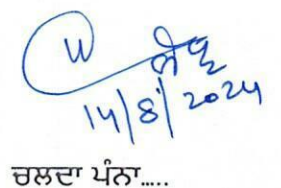 14/8/2024
ਚਲਦਾ ਪੰਨਾ.....